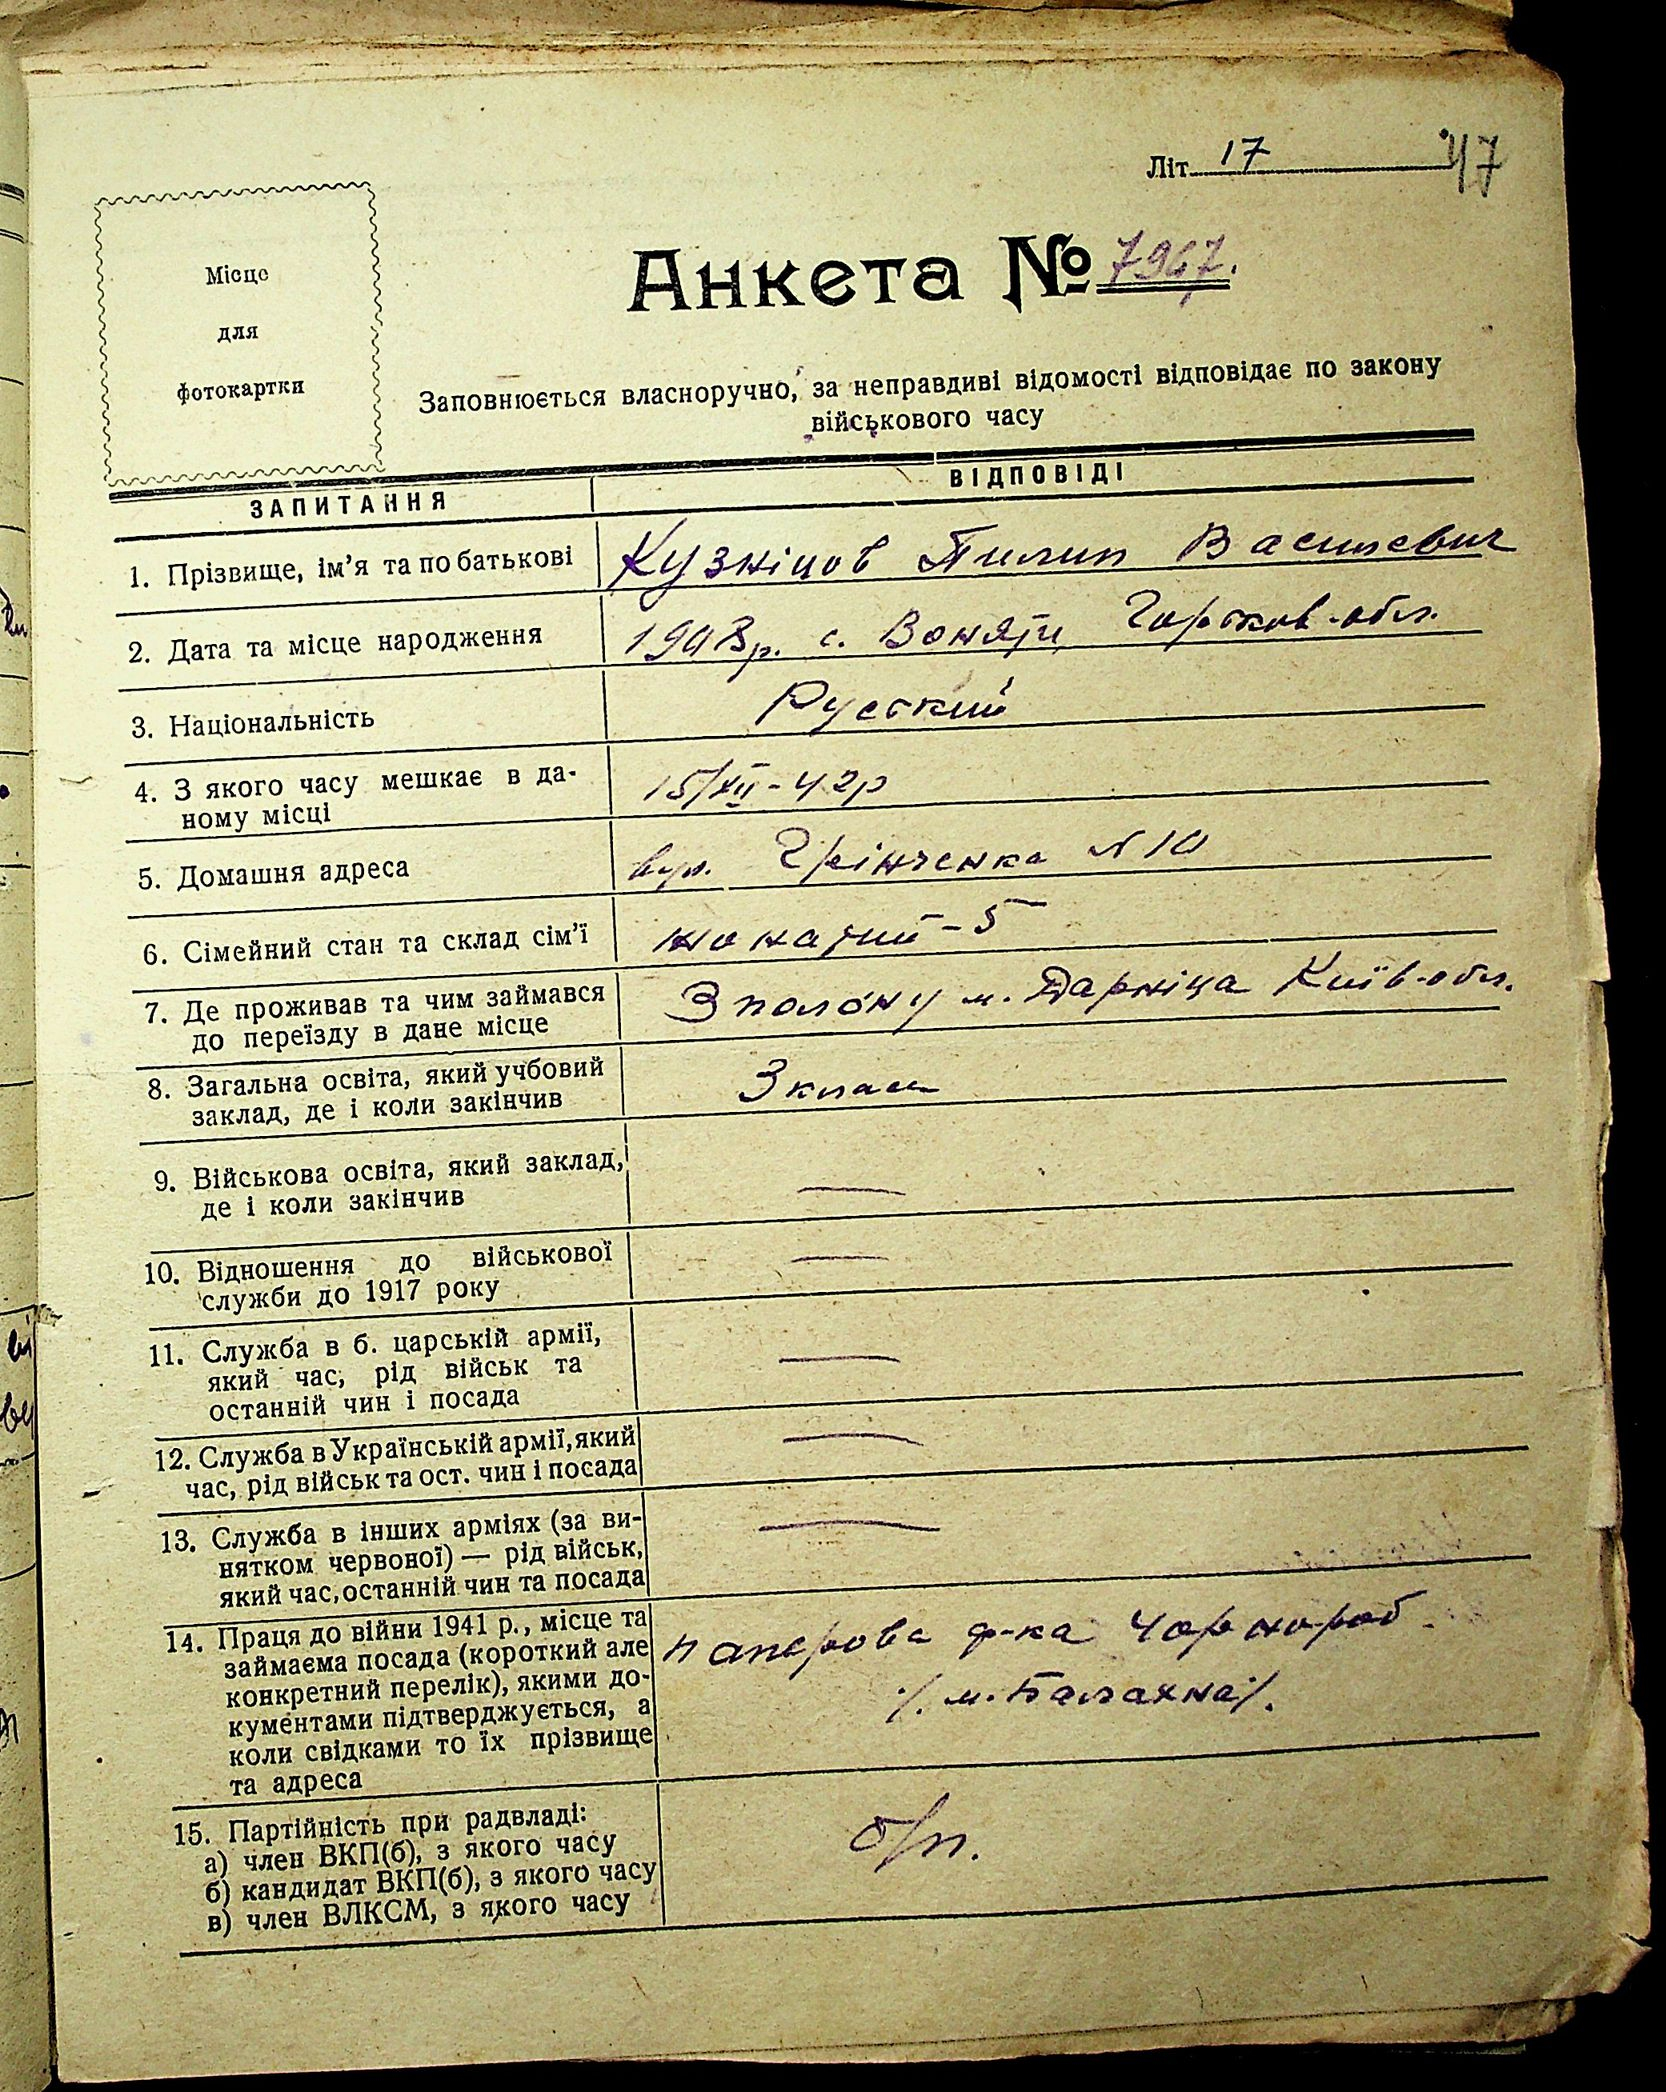 Літ. 17
47
Місце
для
фотокартки
Анкета № 7967.
Заповнюється власноручно, за неправдиві відомості відповідає по закону
військового часу
ЗАПИТАННЯ
ВІДПОВІДІ
1. Прізвище, ім'я та по батькові
Кузніцов Пилип Василевич
2. Дата та місце народження
1903р. с. Горьков-обл.
3. Національність
Русский
4. З якого часу мешкає в да-
ному місці
15/XII-42р
5. Домашня адреса
вул. Грінченка № 10
6. Сімейний стан та склад сім'ї
жонатий-5
7. Де проживав та чим займався
до переїзду в дане місце
З полону м. Дарніца Київ-обл.
8. Загальна освіта, який учбовий
заклад, де і коли закінчив
3 класи
9. Військова освіта, який заклад,
де і коли закінчив
—
10. Відношення до військової
служби до 1917 року
—
11. Служба в б. царській армії,
який час, рід військ та
останній чин і посада
—
12. Служба в Українській армії, який
час, рід військ та ост. чин і посада
—
13. Служба в інших арміях (за ви-
нятком червоної) — рід військ,
який час, останній чин та посада
—
14. Праця до війни 1941 р., місце та
займаєма посада (короткий але
конкретний перелік), якими до-
кументами підтверджується, а
коли свідками то їх прізвище
та адреса
паперова ф-ка чорнороб.
/. м. Балахна/.
15. Партійність при радвладі:
а) член ВКП(б), з якого часу
б) кандидат ВКП(б), з якого часу
в) член ВЛКСМ, з якого часу
б/п.